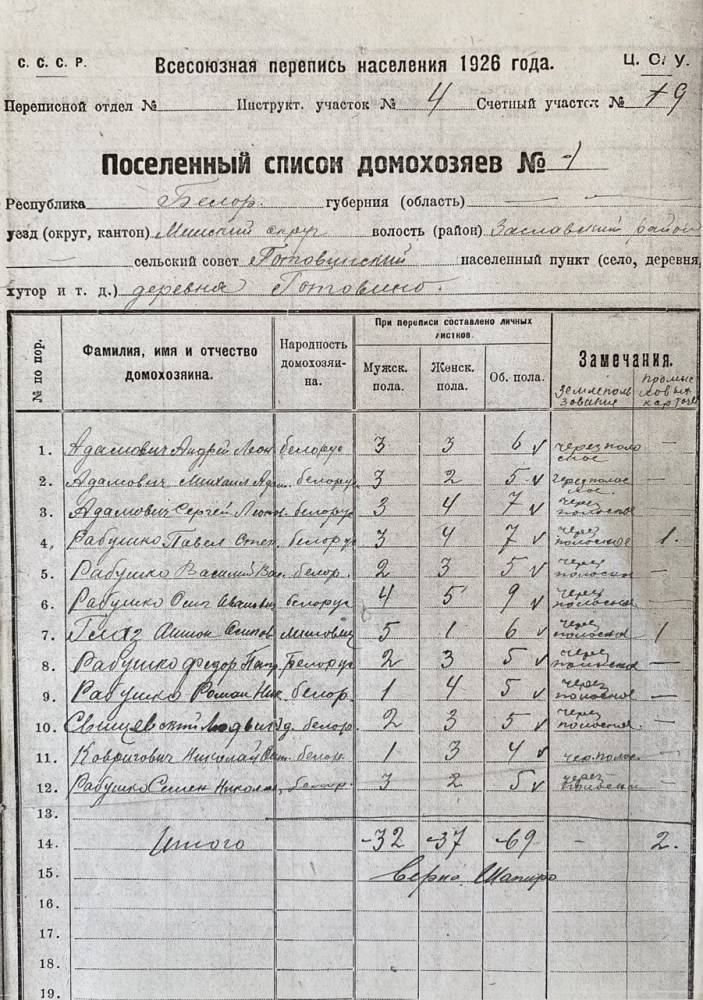 С. С. С. Р. Всесоюзная перепись населения 1926 года. Ц. С. У.
Переписной отдел № Инструкт. участок № 4 Счетный участок № 19
Поселенный список домохозяев № 1
Республика Белор. губерния (область) —
уезд (округ, кантон) Минский округ волость (район) Заславский район
— сельский совет Готовинский населенный пункт (село, деревня,
хутор и т. д.) деревня Готовино.
№ по пор.
Фамилия, имя и отчество домохозяина.
Народность домохозяи-на.
При переписи составлено личных листков.
Мужск. пола.
Женск. пола.
Об. пола.
Замечания.
Землеполь зование
промыс ловых карточек
1. Адамович Андрей Леон белорус 3 3 6 v через поло сное —
2. Адамович Михаил белорус 3 2 5 v Через полос ное. —
3. Адамович Сергей Леонов. белорус 3 4 7 v через полосное —
4. Рабушко Павел Степ. белорус 3 4 7 v через полосное 1.
5. Рабушко Василий Вас. белор. 2 3 5 v через полосно —
6. Рабушко Осип Иванович белорус 4 5 9 v через полосное —
7. Антон Осипов 5 1 6 v через полосное 1
8. Рабушко Федор Белорус 2 3 5 v через полосное —
9. Рабушко Роман Ник. белор. 1 4 5 v через полосное —
10. Людвиг белор. 2 3 5 v через полосное. —
11. Николай белор. 1 3 4 v чер. полос. —
12. Рабушко Семен Никола белор. 3 2 5 v через полосн —
13.
14. Итого -32 -37 -69 - 2.
15. Верно. Шапиро
16.
17.
18.
19.